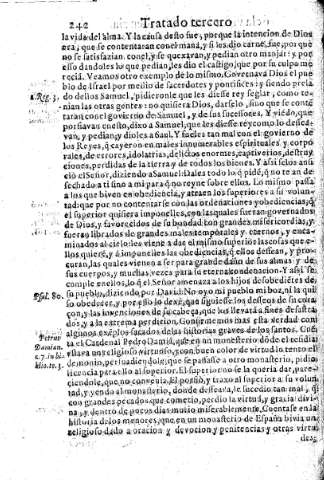 242 Tratado tercero
la vida del alma. Y la causa desto fue, porque la intencion de Dios
era, que se contentaran con el manà, y si les dio carne, fue, porque
no se satisfazian con el, y se quexavan, y pedian otro manjar: y por
esso dandoles lo que pedian, les dio el castigo, que por su culpa me
recia. Veamos otro exemplo de lo mismo. Governava Dios el pue
blo de Israel por medio de sacerdotes y pontifices: y siendo prela
1. Reg. 8. do dellos Samuel, pidieronle que les diesse rey seglar, como te-
nian las otras gentes: no quisiera Dios, darselo, sino que se conte
taran con el govierno de Samuel, y de sus sucessores. Y viẽdo, que
porfiavan en esto, dixo a Samuel, que les diesse rey como lo dessea-
van, y pedian, y dioles a Saul. Y fueles tan mal con el govierno de
los Reyes, q̃ cayeron en males innumerables espirituales y corpo
rales, de errores, idolatrias, delictos enormes, captiverios, destruy
ciones, perdidas de la tierra y de todos los bienes. Y assi se los anũ
ciò el Señor, diziendo a Samuel: Dales todo lo q̃ pidẽ, q̃ no te an de
sechado a ti sino a mi para q̃ no reyne sobre ellos. Lo mismo passa
a los que biven en obediencia, y atraen los superiores a su volun-
tad: que por no contentarse con las ordenaciones y obediẽcias, q̃
el superior quisiera imponelles, con las quales fueran governados
de Dios, y favorecidos de su bondad con grandes misericordias, y
fueran librados de grandes males temporales y eternos, y enca-
minados al cielo: les viene a dar el mismo superior las cosas que e-
llos quierẽ, y a imponelles las obediencias, q̃ ellos dessean, y pro-
curan, las quales vienen a ser para grande daño de sus almas y de
sus cuerpos, y muchas vezes para su eterna condenacion. Y assi se
cumple en ellos, lo q̃ el Señor amenaza a los hijos desobediẽtes de
Psal. 80. su pueblo, diziendo por David: No oyo mi pueblo mi boz, ni la qui
so obedecer, y por esso lo dexè, que siguiesse los desseos de su cora-
çon, y las invenciones de su cabeça, que los llevarà a fines desastra
dos, y a la extrema perdicion. Confirmemos mas esta verdad con
algunos exẽplos sacados de las historias graves de los santos. Cuẽ
Petrus ta el Cardenal Pedro Damiã, que en un monesterio dõde el resi
Damian. estava un religioso virtuoso, y con buen color de virtud lo tentò el
demonio, persuadiendole, que se passasse a otro monesterio, pidiẽ
licencia para ello al superior. El superior no le queria dar, pare-
ciendole, que no convenia. El porfiò, y traxo al superior a su volun
tad, y yendo al monesterio, donde desseava, le sucedio tan mal, q̃
con grandes pecados que cometio, perdio la virtud, y gracia divi-
na, y dentro de pocos dias murio miserablemente. Cuentase en la
historia de los menores, que en un monesterio de España bivia un
religioso dado a oracion y devocion y penitencias y otras virtu
des,